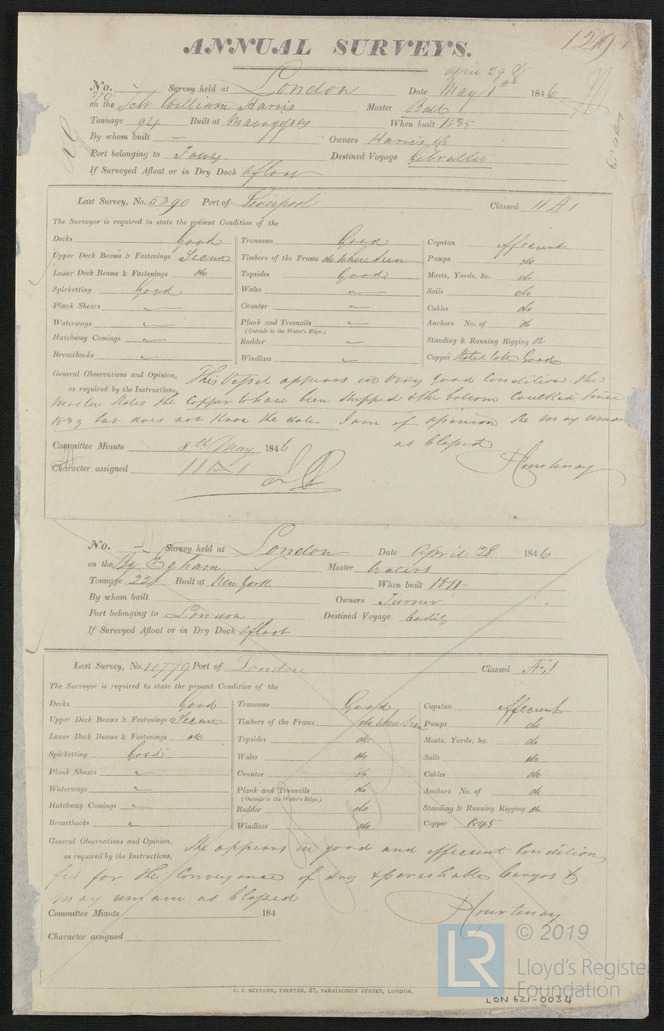 ANNUAL SURVEYS.
1219
April 29 &
No. Survey held at London Date May 1st 1846
on the Schr William Harris Master Ball
Tonnage 94 Built at Built when 1835
By whom built — Owners Harris & Co
Port belonging to Fowey Destined Voyage Gibraltar
If Surveyed Afloat or in Dry Dock Afloat
Last Survey, No. 5390 Port of Liverpool Classed 11 A 1
The Surveyor is required to state the present Condition of the
Decks Good Transoms Good Capstan efficient
Upper Deck Beams & Fastenings Secure Timbers of the Frame do where seen Pumps do
Lower Deck Beams & Fastenings do Topsides Good Masts, Yards, &c. do
Spirketting Good Wales " Sails do
Plank Shears " Counter " Cables do
Waterways " Plank and Treenails " Anchors No. of do
(Outside to the Water's Edge.)
Hatchway Comings " Rudder " Standing & Running Rigging do
Breasthooks " Windlass " Copper Stated to be Good
General Observations and Opinion, This Vessel appears in very good Condition. The
as required by the Instructions,
Master States the Copper to have been stripped & the bottom Caulked since
1839 but does not know the date. I am of opinion she may remain
as Classed
Committee Minute 8th May 1846
Character assigned 11 A 1
No. Survey held at London Date April 28 1846
on the Bg Egham Master
Tonnage 228 Built at New York When built 1811
By whom built Owners Turner
Port belonging to London Destined Voyage Cadiz
If Surveyed Afloat or in Dry Dock Afloat
Last Survey, No. 10779 Port of London Classed Æ 1
The Surveyor is required to state the present Condition of the
Decks Good Transoms Good Capstan efficient
Upper Deck Beams & Fastenings Secure Timbers of the Frame do where seen Pumps do
Lower Deck Beams & Fastenings do Topsides do Masts, Yards, &c. do
Spirketting Good Wales do Sails do
Plank Shears " Counter do Cables do
Waterways " Plank and Treenails do Anchors No. of do
(Outside to the Water's Edge.)
Hatchway Comings " Rudder do Standing & Running Rigging do
Breasthooks " Windlass do Copper 1845
General Observations and Opinion, She appears in good and efficient Condition
as required by the Instructions,
fit for the Conveyance of dry & perishable Cargos &
may remain as Classed
Committee Minute 184
Character assigned
C. F. SEYFANG, PRINTER, 57, FARRINGDON STREET, LONDON.
© 2019
LR Lloyd's Register
Foundation
LON 621-0034